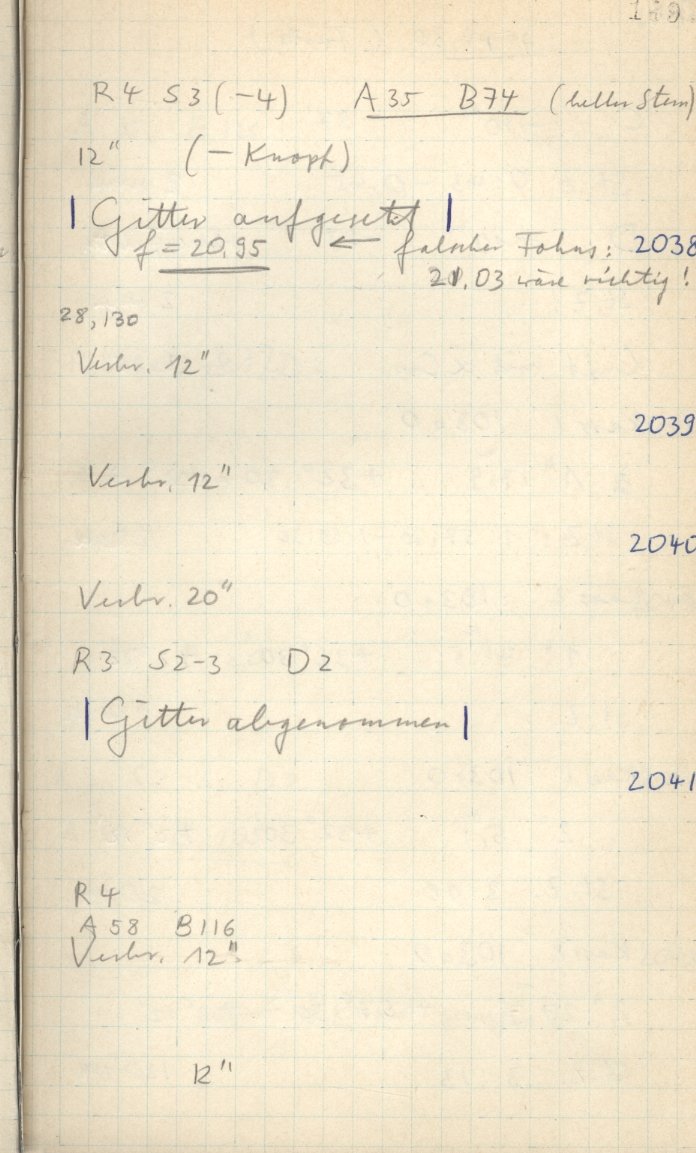 R4 S3 (-4) A35 B74 (heller Stern)
12" (- Knopf)
| Gitter aufgesetzt |
f = 20.95 ← falscher Fokus: 2038
21.03 wäre richtig!
28,130
Verbr. 12"
2039
Verbr. 12"
2040
Verbr. 20"
R3 S2-3 D2
| Gitter abgenommen |
2041
R4
A58 B116
Verbr. 12"
12"